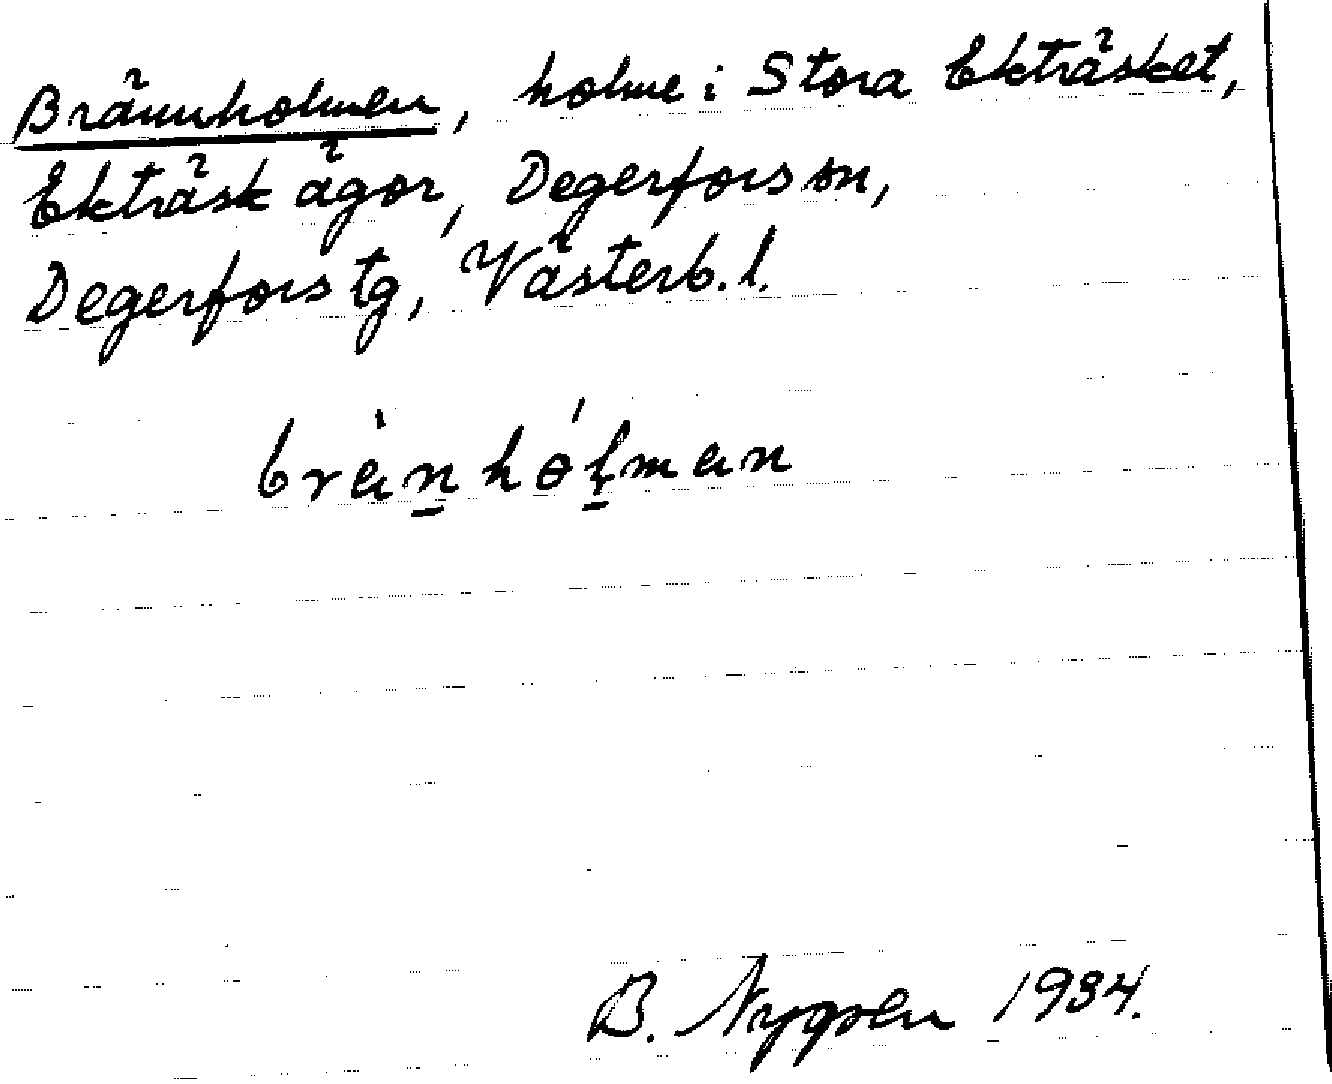 Brännholmen, holme i Stora Ekträsket,
Ekträsk ägor, Degerfors sn,
Degerfors tg, Västerb. l.
brä̀n̲hóḷ̲man
B. Nygren 1934.